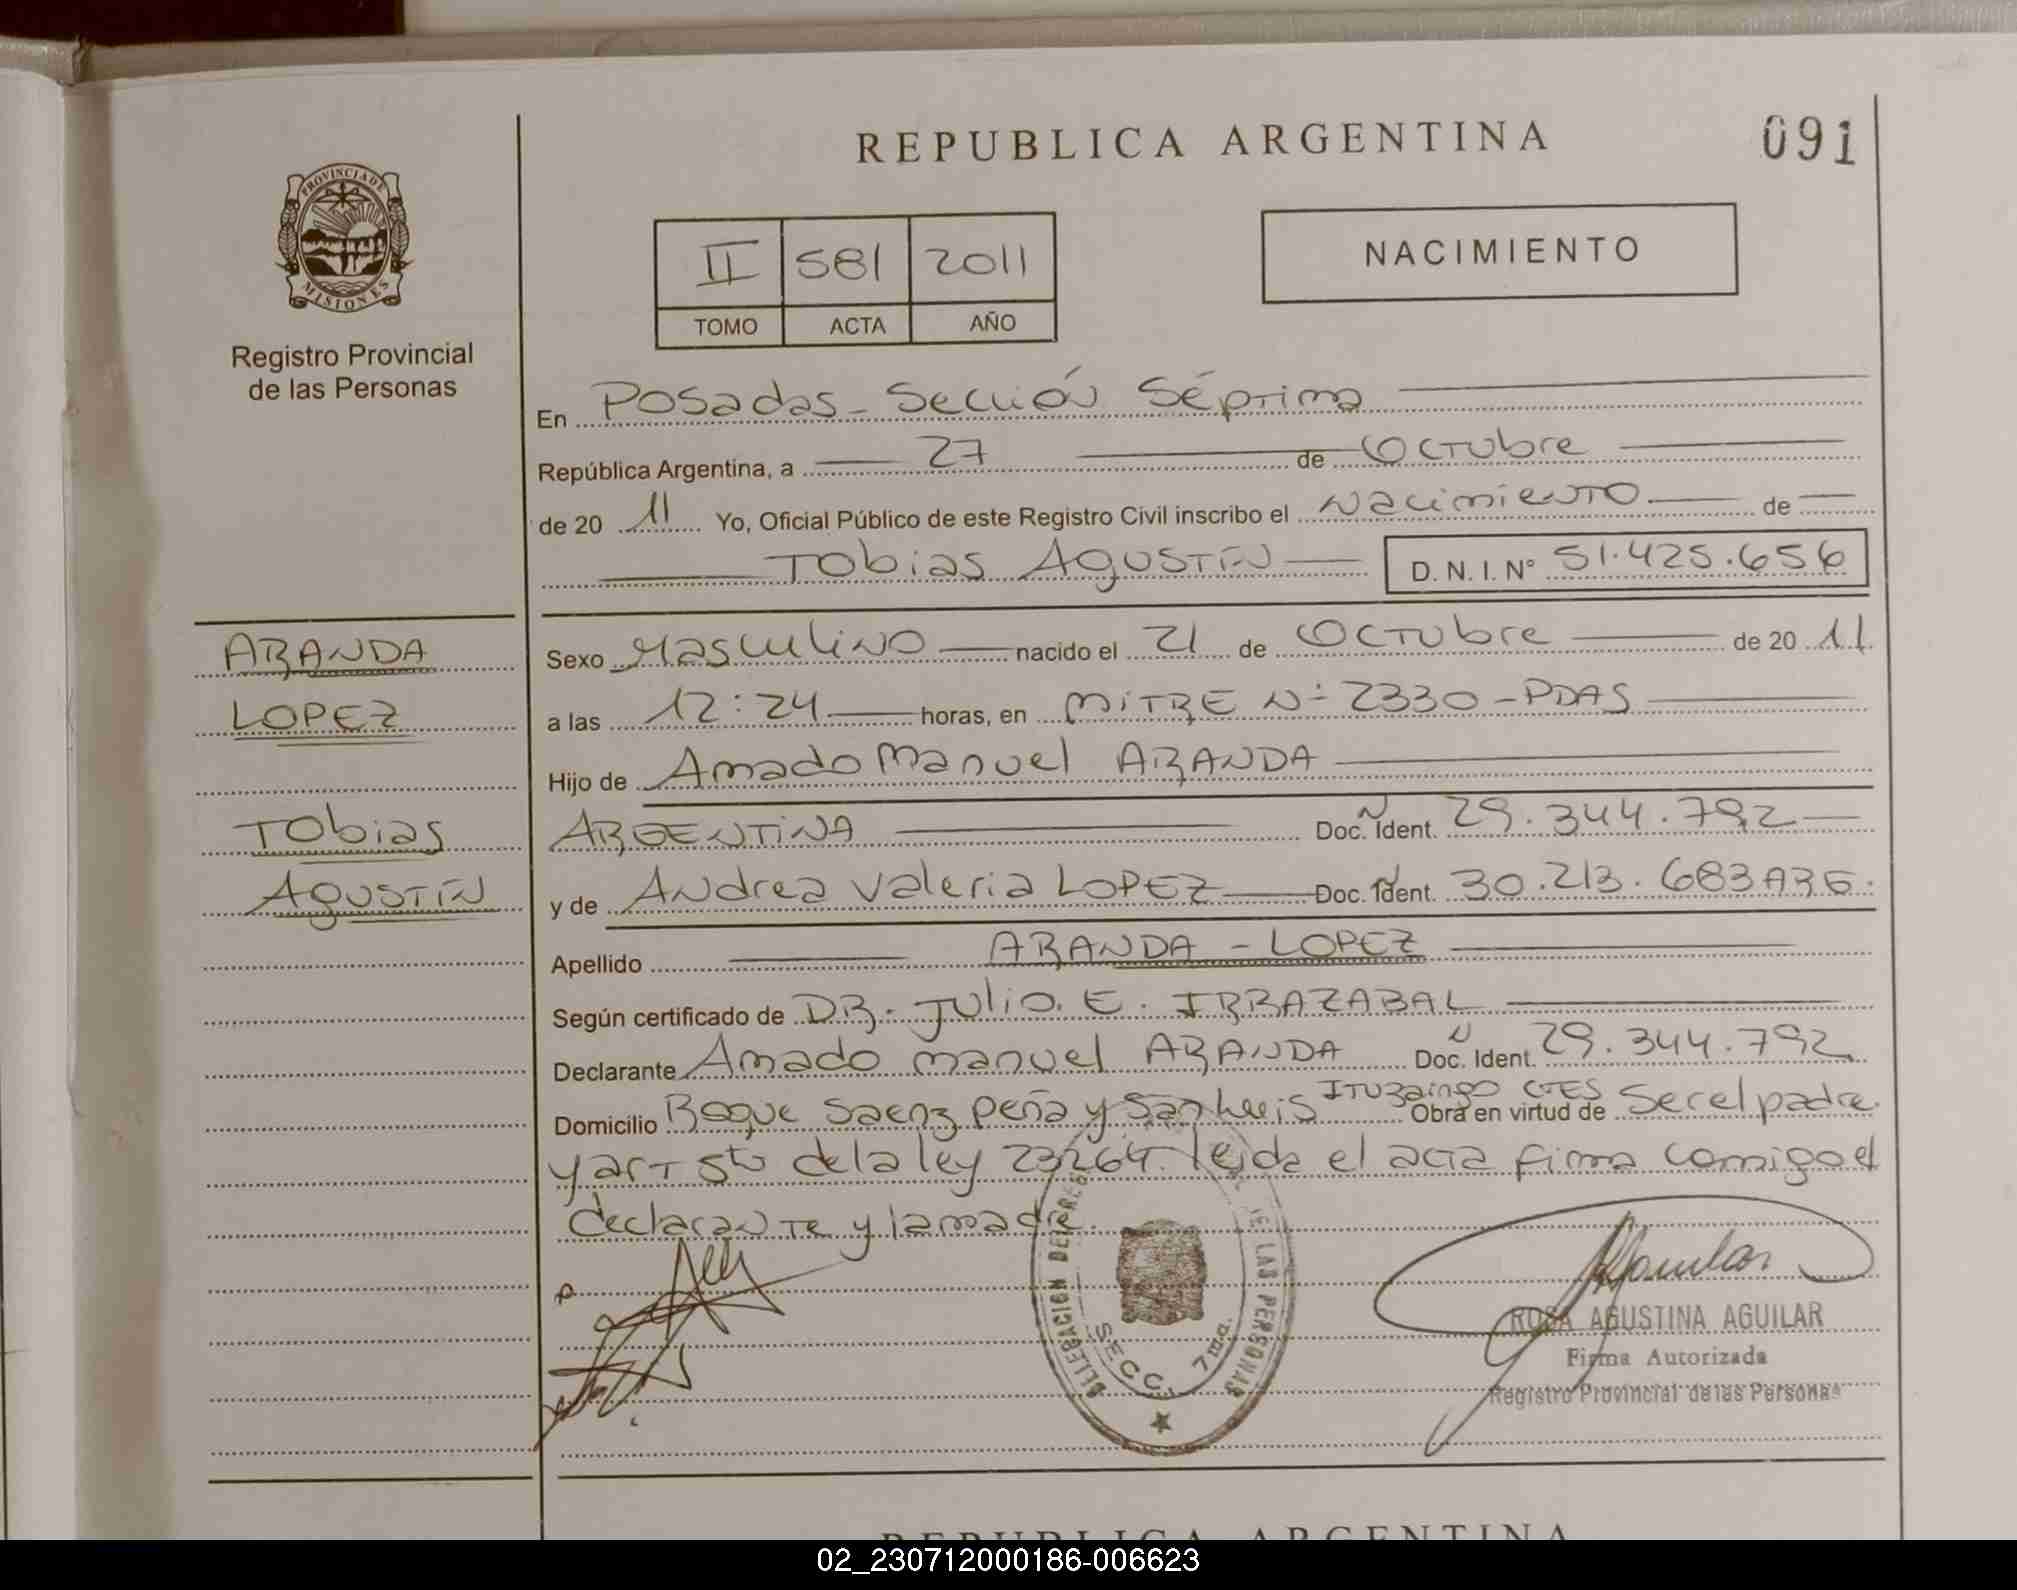 REPUBLICA ARGENTINA
091
PROVINCIA DE
MISIONES
Registro Provincial
de las Personas
II 581 2011
TOMO ACTA AÑO
NACIMIENTO
En Posadas - Sección Séptima
República Argentina, a 27 de Octubre
de 20 11 Yo, Oficial Público de este Registro Civil inscribo el Nacimiento de
Tobias Agustín D. N. I. N° 51.425.656
ARANDA
LOPEZ
Tobias
Agustín
Sexo Masculino nacido el 21 de Octubre de 20 11.
a las 12:24 horas, en MITRE N° 2330 - PDAS
Hijo de Amado Manuel ARANDA
ARGENTINA Doc. Ident. 29.344.792
y de Andrea Valeria LOPEZ Doc. Ident. 30.213.683 ARG.
Apellido ARANDA - LOPEZ
Según certificado de DR. Julio. E. IRRAZABAL
Declarante Amado Manuel ARANDA Doc. Ident. 29.344.792
Domicilio Roque Saenz Peña y San Luis Ituzaingo CTES Obra en virtud de Ser el padre
y art 5to de la ley 23264. leida el acta firma comigo el
declarante y la madre.
DELEGACION DEL REG DE LAS PERSONAS
SECC. 7ma.
ROSA AGUSTINA AGUILAR
Firma Autorizada
Registro Provincial de las Personas
REPUBLICA ARGENTINA
02_230712000186-006623